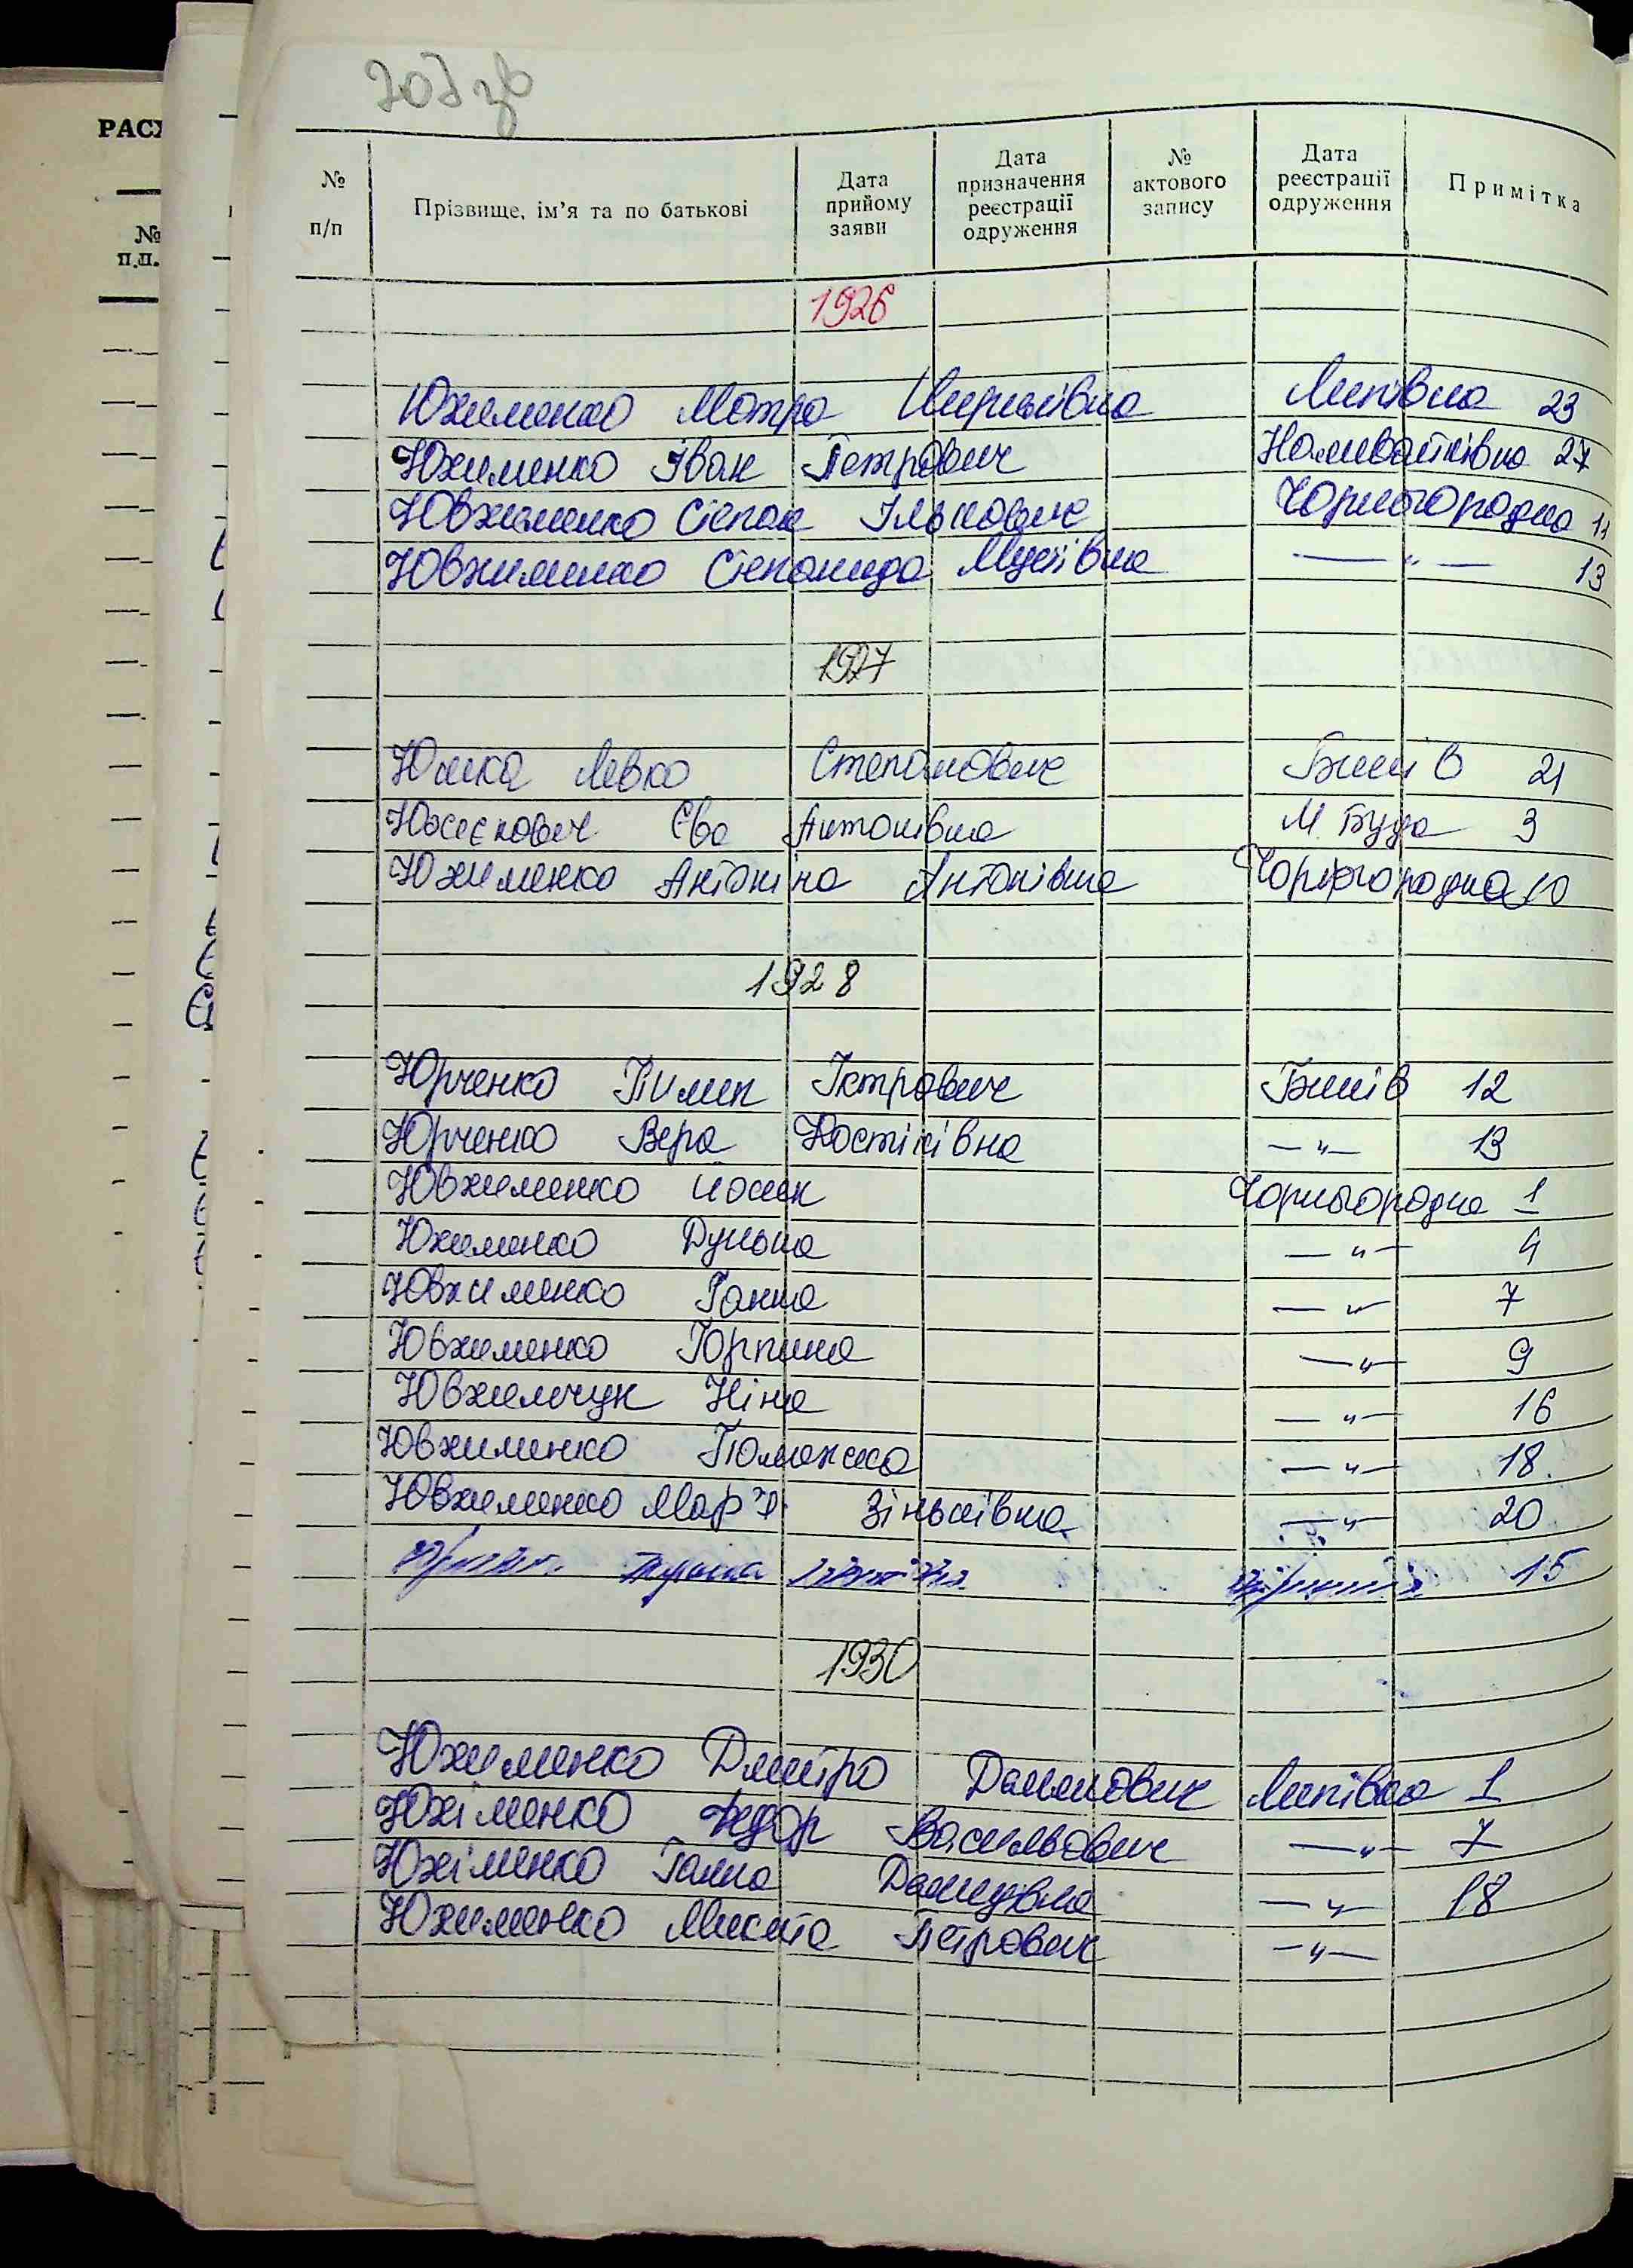 203 зв
РАСХ
№
п.п.
№ п/п Прізвище, ім’я та по батькові Дата прийому заяви Дата призначення реєстрації одруження № актового запису Дата реєстрації одруження Примітка
1926
Юхименко Мотра Липівка 23
Юхименко Іван Петрович Наливайківка 27
Ювхименко Степан Ількович Чорногородка 11
Ювхименко Степанида Мусіївна —"— 13
1927
Юшка Левко Степанович Бишів 21
Юзескович Єва Антонівна М. Буда 3
Юхименко Антоніна Антонівна Чорногородка 10
1928
Юрченко Пилип Петрович Бишів 12
Юрченко Вера Костівна —"— 13
Ювхименко Йосип Чорногородка 1
Юхименко Дунька —"— 4
Ювхименко Ганна —"— 7
Ювхименко Горпина —"— 9
Ювхимчук Ніна —"— 16
Ювхименко —"— 18
Ювхименко Мар'я Зіньківна —"— 20
15
1930
Юхименко Дмитро Данилович Липівка 1
Юхіменко Федор Васильович —"— 7
Юхіменко Галина Демидівна —"— 18
Юхименко Микита Петрович —"—